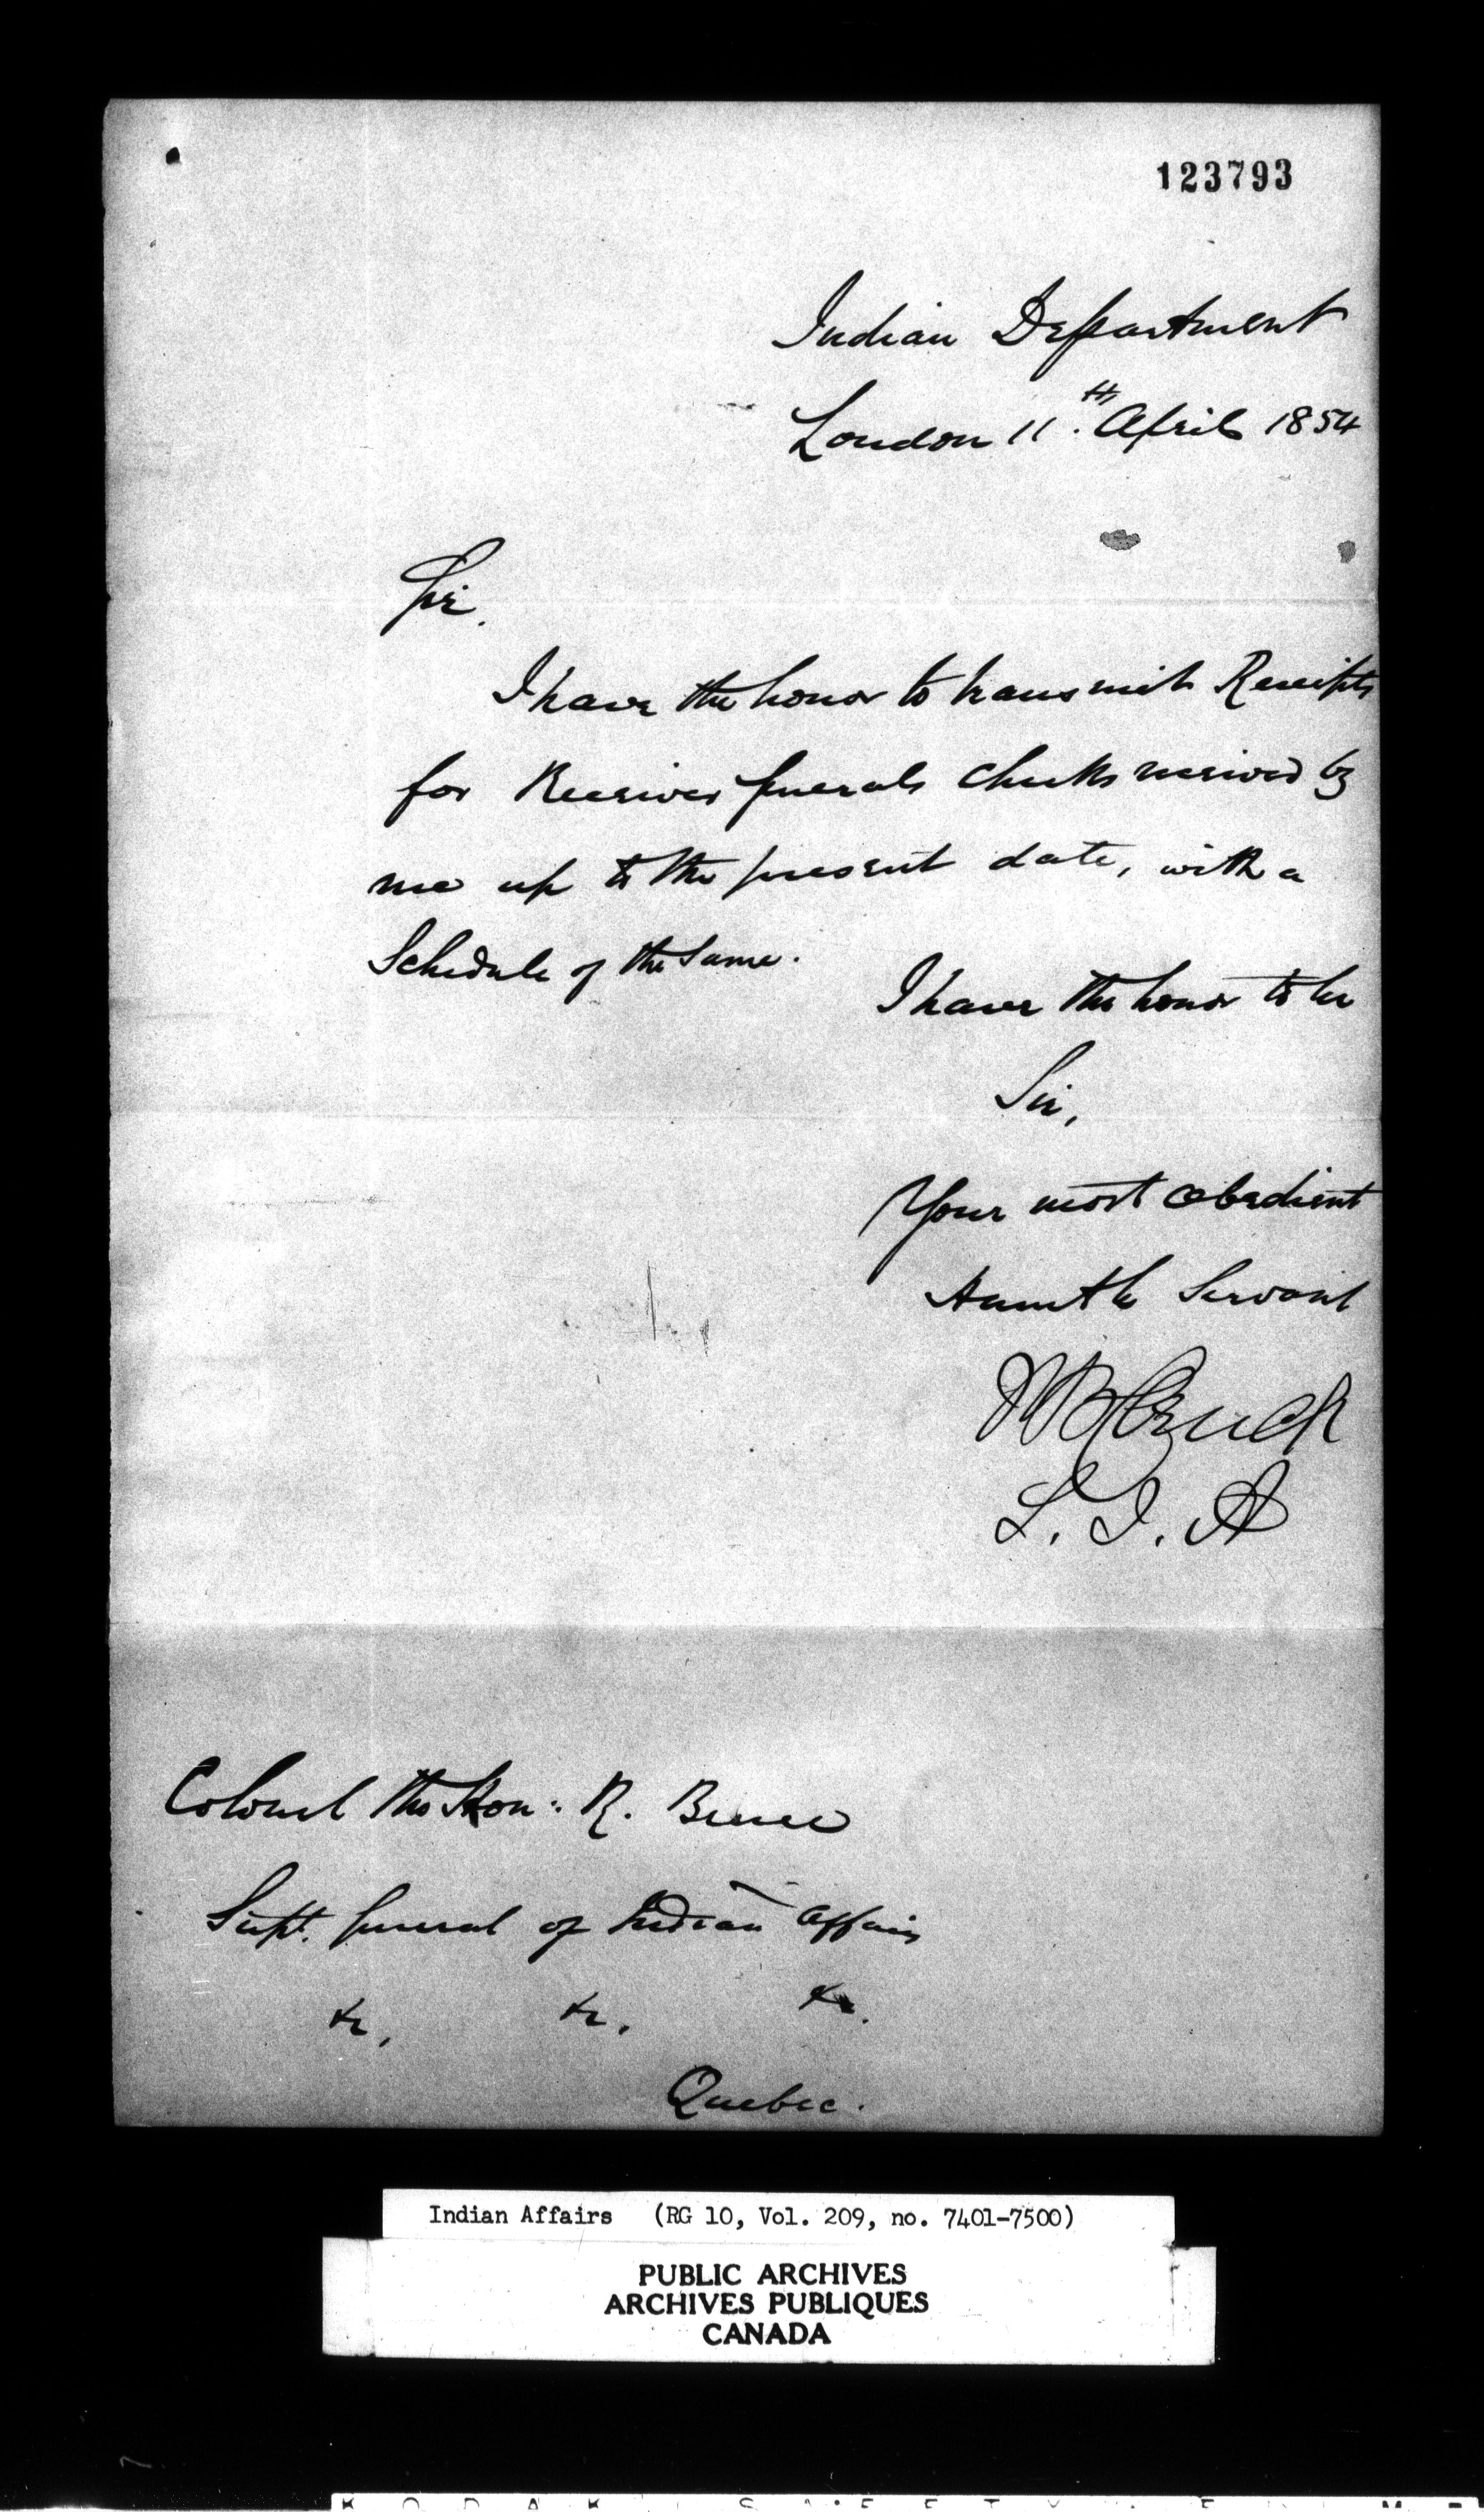 123793
Indian Department
London 11th. April 1854
Sir.
I have the honor to transmit Receipts
for Receiver Generals Checks received by
me up to the present date, with a
Schedule of the Same.
I have the honor to be
Sir,
Your most obedient
Humble Servant
S. I. A
Colonel the Hon: R. Bruce
Supt. General of Indian Affairs
&c. &c. &c.
Quebec.
Indian Affairs (RG 10, Vol. 209, no. 7401-7500)
PUBLIC ARCHIVES
ARCHIVES PUBLIQUES
CANADA